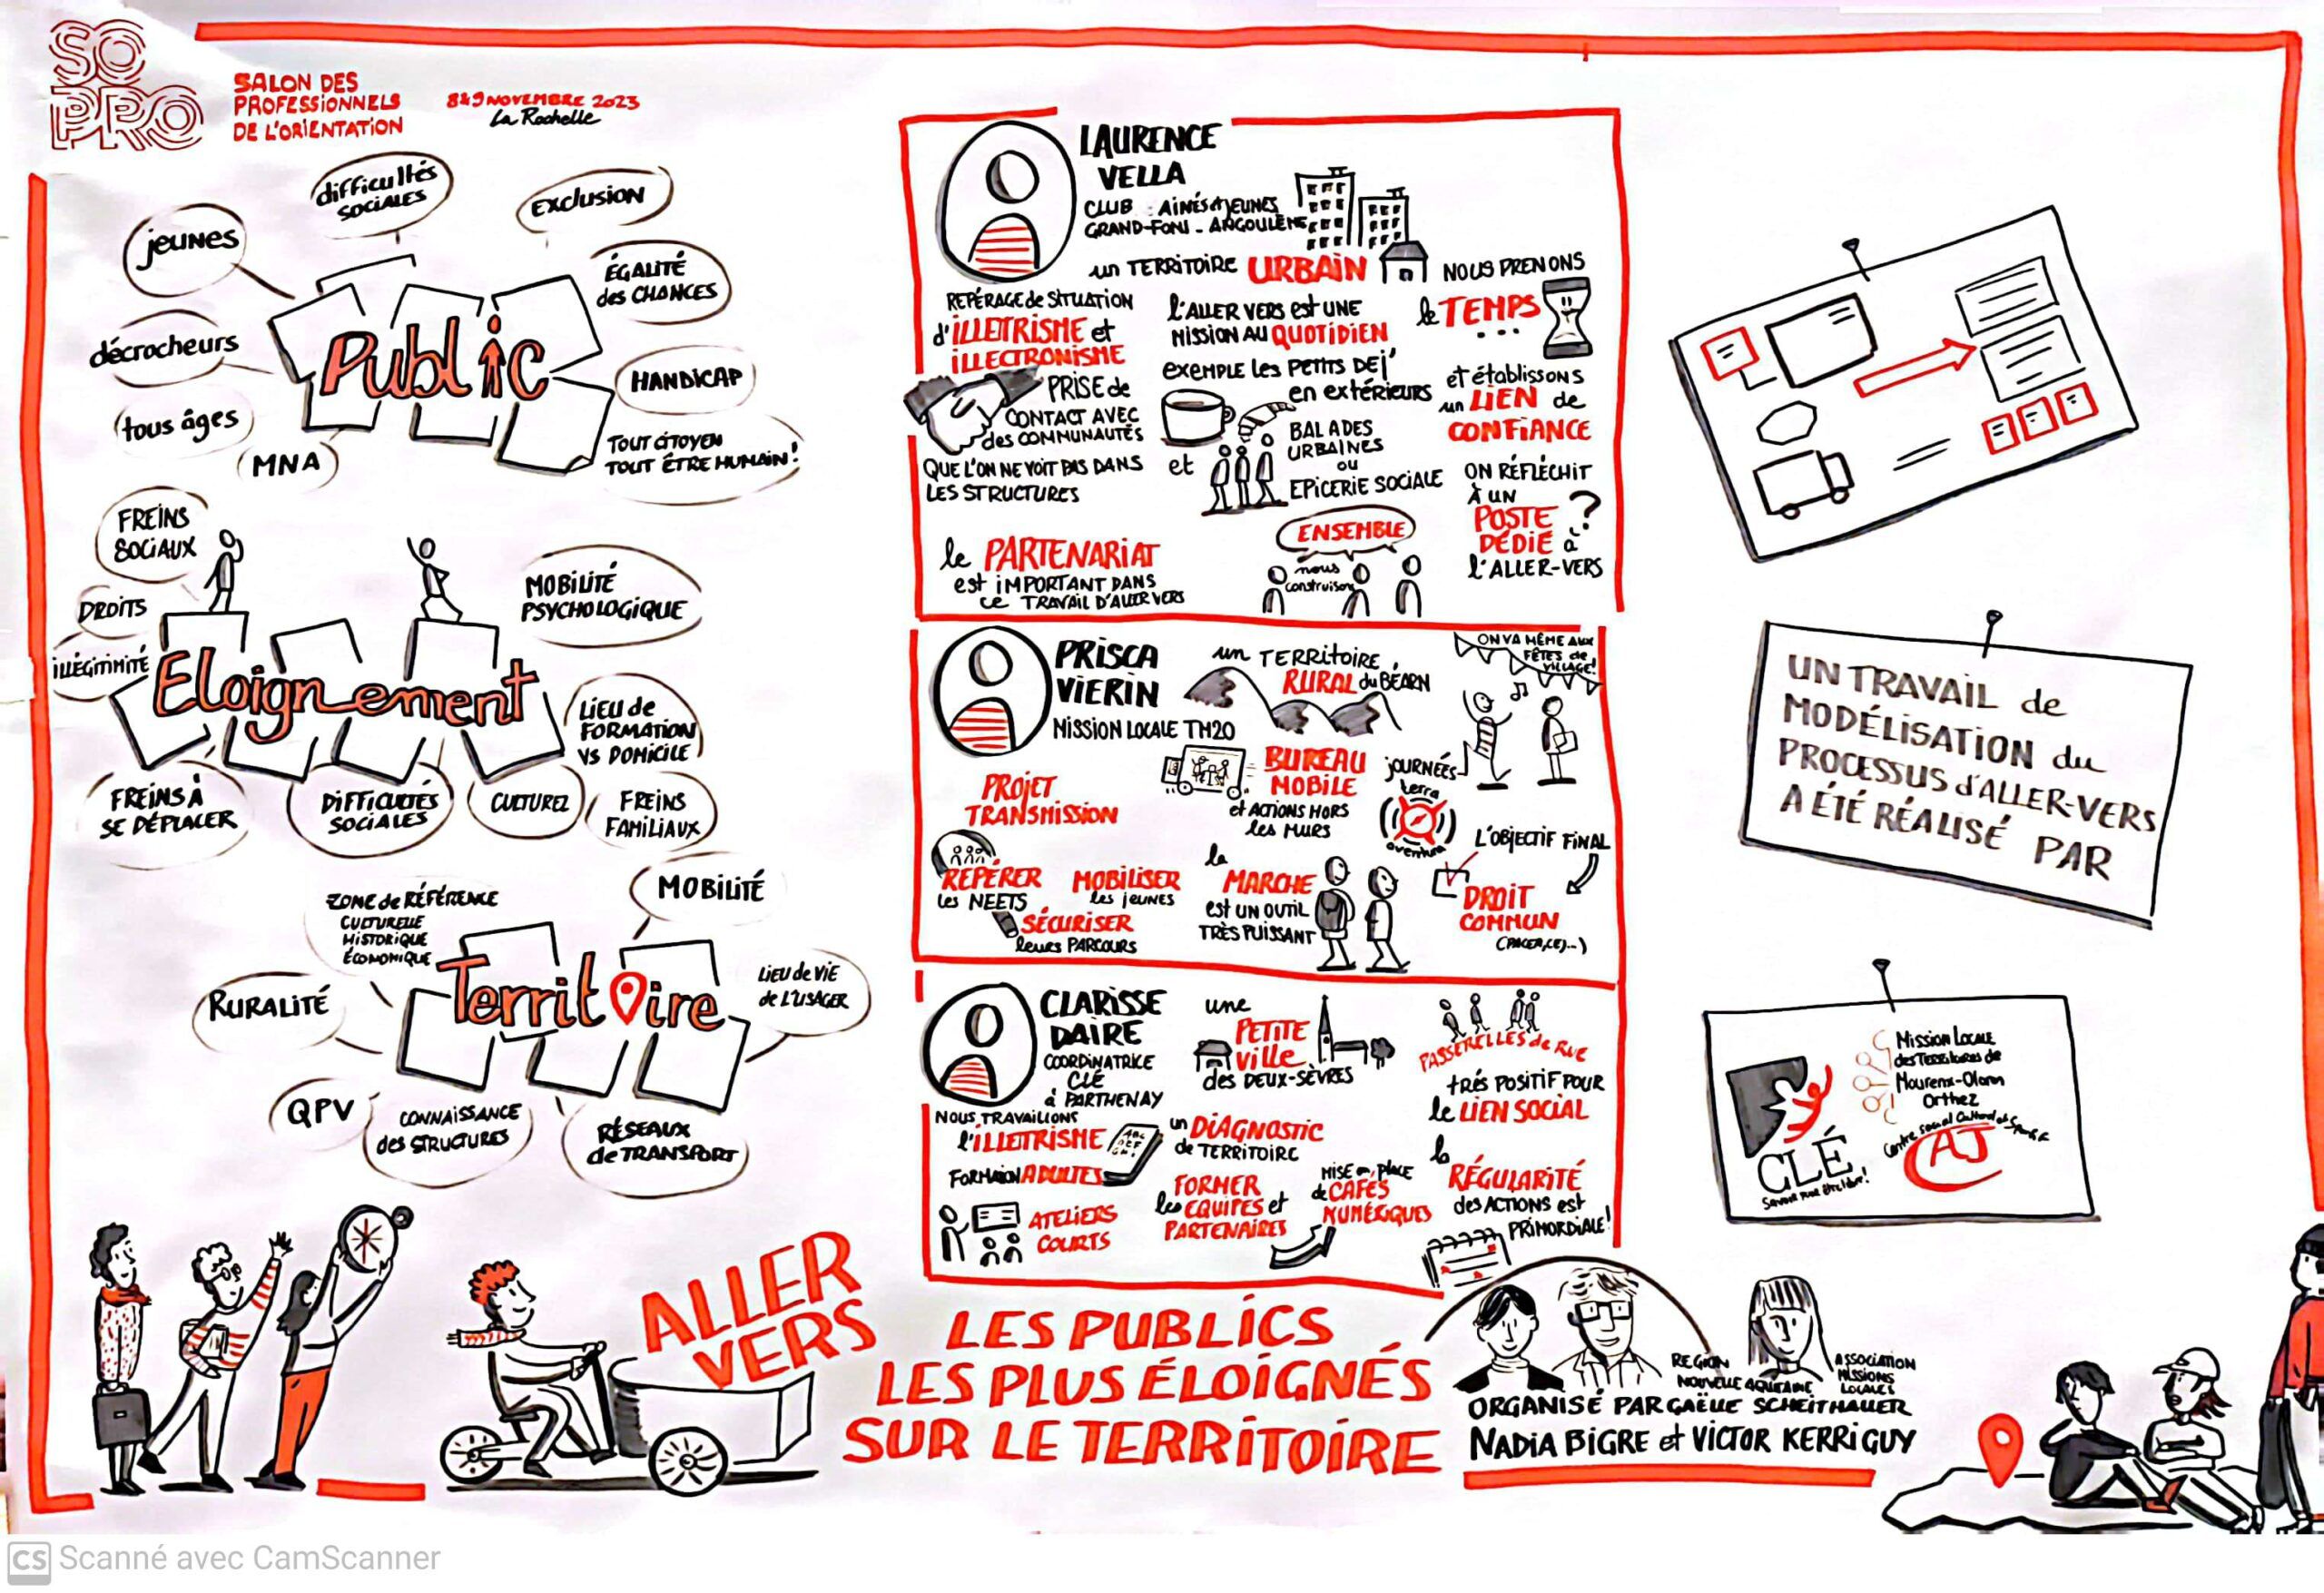 SO
PRO
SALON DES
PROFESSIONNELS
DE L'ORIENTATION
8&9 NOVEMBRE 2023
La Rochelle
difficultés
SOCIALES
EXCLUSION
JEUNES
ÉGALITÉ
des CHANCES
décrocheurs
Public
HANDICAP
tous âges
MNA
TOUT CITOYEN
TOUT ÊTRE HUMAIN!
FREINS
SOCIAUX
DROITS
ILLÉGITIMITÉ
MOBILITÉ
PSYCHOLOGIQUE
Eloignement
LIEU de
FORMATION
VS DOMICILE
FREINS À
SE DÉPLACER
DIFFICULTÉS
SOCIALES
CULTUREL
FREINS
FAMILIAUX
ZONE de RÉFÉRENCE
CULTURELLE
HISTORIQUE
ÉCONOMIQUE
MOBILITÉ
Territoire
RURALITÉ
LIEU de VIE
de L'USAGER
QPV
CONNAISSANCE
des STRUCTURES
RÉSEAUX
de TRANSPORT
LAURENCE
VELLA
CLUB AINÉS et JEUNES
GRAND-FONT - ANGOULÊME
un TERRITOIRE URBAIN
REPÉRAGE de SITUATION
d'ILLETTRISME et
ILLECTRONISME
PRISE de
CONTACT AVEC
des COMMUNAUTÉS
QUE L'ON NE VOIT PAS DANS
LES STRUCTURES
L'ALLER VERS est UNE
MISSION AU QUOTIDIEN
EXEMPLE LES PETITS DEJ'
en extérieurs
et
BALADES
URBAINES
ou
EPICERIE SOCIALE
NOUS PRENONS
le TEMPS
...
et établissons
un LIEN de
CONFIANCE
ON RÉFLÉCHIT
À UN
POSTE ?
DÉDIÉ à
l'ALLER-VERS
le PARTENARIAT
est IMPORTANT DANS
ce TRAVAIL D'ALLER VERS
ENSEMBLE
nous
construisons
PRISCA
VIERIN
MISSION LOCALE TM20
un TERRITOIRE
RURAL du BÉARN
ON VA MÊME AUX
FÊTES de
VILLAGE!
PROJET
TRANSMISSION
BUREAU
MOBILE
et ACTIONS HORS
les MURS
JOURNÉES
terra
aventura
REPÉRER
les NEETS
MOBILISER
les jeunes
SÉCURISER
leurs PARCOURS
la
MARCHE
est UN OUTIL
TRÈS PUISSANT
L'OBJECTIF FINAL
DROIT
COMMUN
(PACEA, CEJ...)
CLARISSE
DAIRE
COORDINATRICE
CLÉ
à PARTHENAY
une
PETITE
ville
des DEUX-SÈVRES
PASSERELLES de RUE
très POSITIF POUR
le LIEN SOCIAL
NOUS TRAVAILLONS
l'ILLETTRISME
ABC
DEF
FORMATION ADULTES
ATELIERS
COURTS
un DIAGNOSTIC
de TERRITOIRE
FORMER
les EQUIPES et
PARTENAIRES
MISE en place
de CAFÉS
NUMÉRIQUES
la
RÉGULARITÉ
des ACTIONS est
PRIMORDIALE!
UN TRAVAIL de
MODÉLISATION du
PROCESSUS d'ALLER-VERS
A ÉTÉ RÉALISÉ PAR
Mission Locale
des Territoires de
Mourenx-Oloron
Orthez
Centre social Culturel et Sportif
AJ
CLÉ
Savoir pour être libre!
ALLER
VERS
LES PUBLICS
LES PLUS ÉLOIGNÉS
SUR LE TERRITOIRE
REGION
NOUVELLE AQUITAINE
ASSOCIATION
MISSIONS
LOCALES
ORGANISÉ PAR GAËLLE SCHEITHAUER
NADIA BIGRE et VICTOR KERRIGUY
CS Scanné avec CamScanner